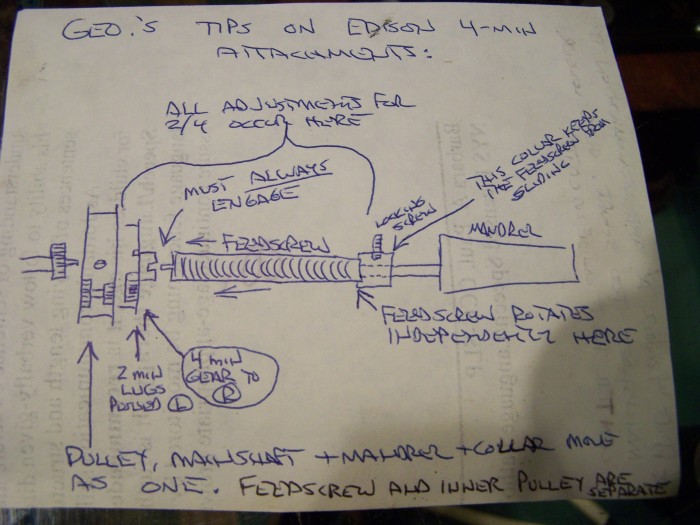 GEO.'S TIPS ON EDISON 4-MIN
ATTACHMENTS:
ALL ADJUSTMENTS FOR
2/4 OCCUR HERE
MUST ALWAYS
ENGAGE
THIS COLLAR KEEPS
THE FEEDSCREW FROM
SLIDING
LOCKING
SCREW
MANDREL
FEEDSCREW
FEEDSCREW ROTATES
INDEPENDENTLY HERE
2 MIN
LUGS
PUSHED L
4 MIN
GEAR TO
R
PULLEY, MAINSHAFT + MANDREL + COLLAR MOVE
AS ONE. FEEDSCREW AND INNER PULLEY ARE
SEPARATE